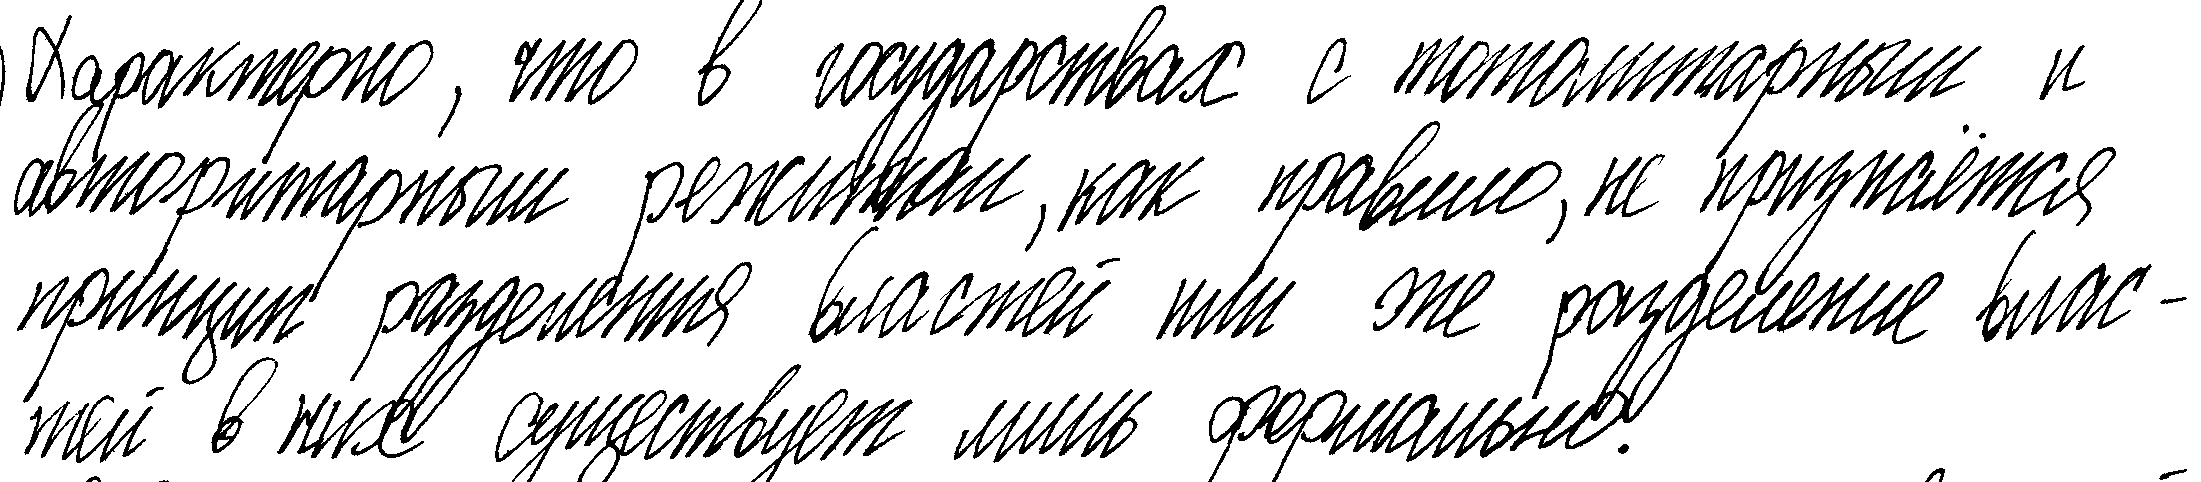 Характерно, что в государствах с тоталитарным и
авторитарным режимом, как правило, не признаётся
принцип разделения властей или же разделение влас-
тей в них существует лишь формально.